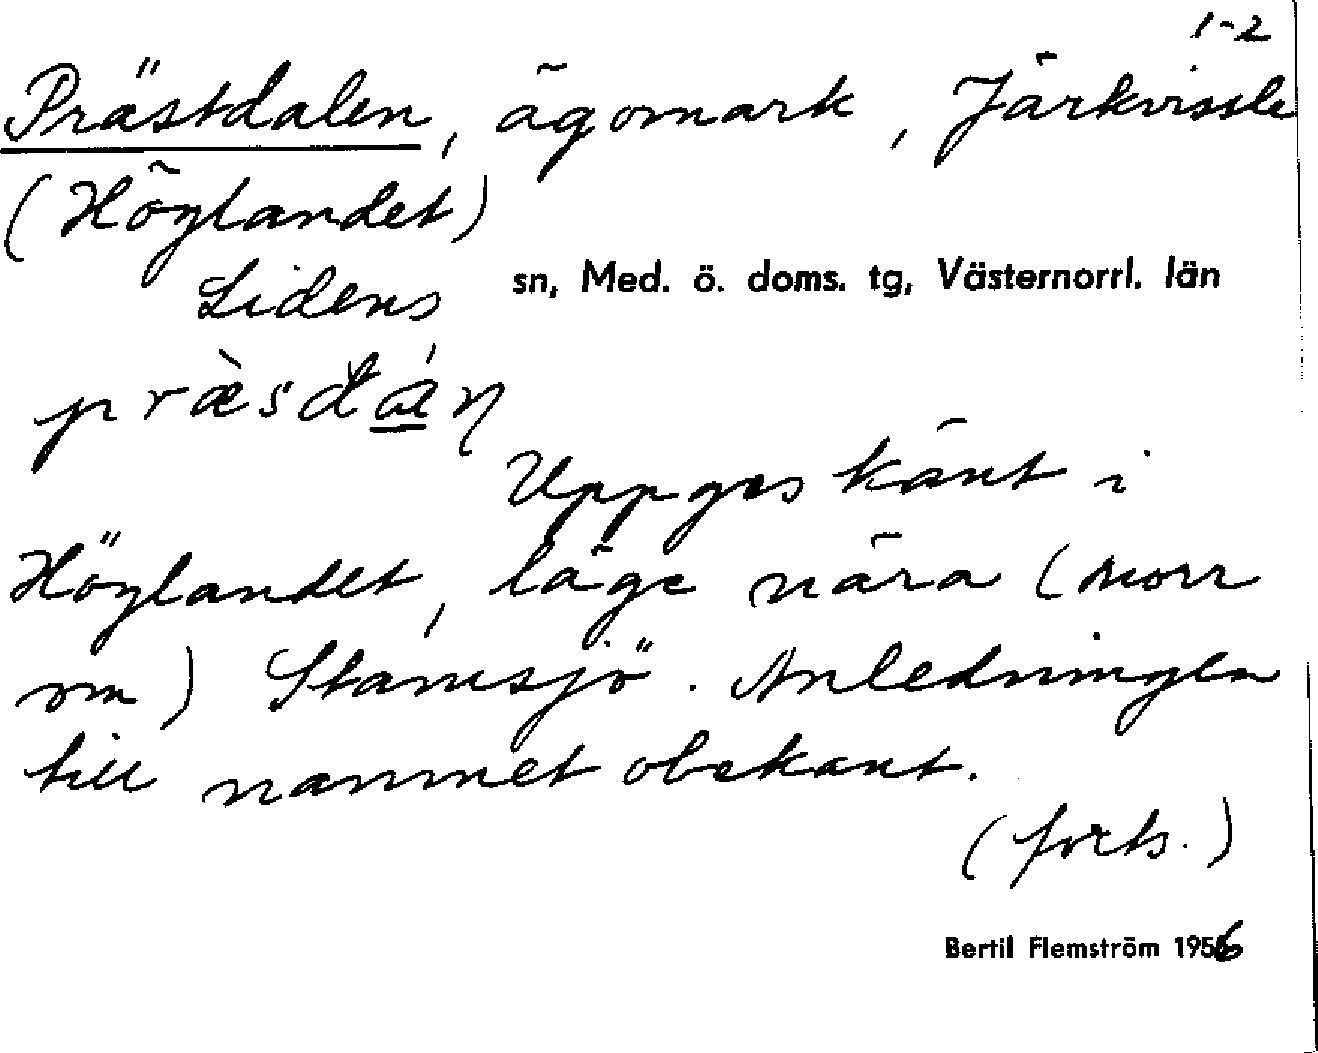 1-2
Prästdalen, ägomark, Järkvissle
(Höglandet)
Lidens sn, Med. ö. doms. tg, Västernorrl. län
Uppges känt i
Höglandet, läge nära (norr
om) Stamsjö. Anledningen
till namnet obekant.
(forts.)
Bertil Flemström 1956